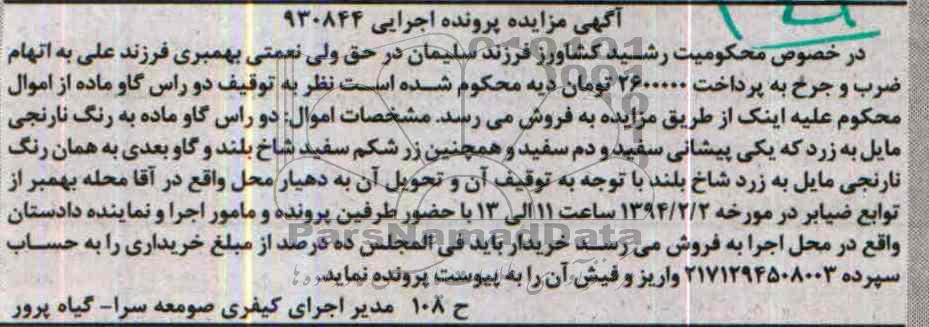 آگهی مزایده پرونده اجرایی ۹۳۰۸۴۴
در خصوص محکومیت رشید کشاورز فرزند سلیمان در حق ولی نعمتی بهمبری فرزند علی به اتهام
ضرب و جرح به پرداخت ۲۶۰۰۰۰۰ تومان دیه محکوم شده است نظر به توقیف دو راس گاو ماده از اموال
محکوم علیه اینک از طریق مزایده به فروش می رسد. مشخصات اموال: دو راس گاو ماده به رنگ نارنجی
مایل به زرد که یکی پیشانی سفید و دم سفید و همچنین زر شکم سفید شاخ بلند و گاو بعدی به همان رنگ
نارنجی مایل به زرد شاخ بلند با توجه به توقیف آن و تحویل آن به دهیار محل واقع در آقا محله بهمبر از
توابع ضیابر در مورخه ۱۳۹۴/۲/۲ ساعت ۱۱ الی ۱۳ با حضور طرفین پرونده و مامور اجرا و نماینده دادستان
واقع در محل اجرا به فروش می رسد خریدار باید فی المجلس ده درصد از مبلغ خریداری را به حساب
سپرده ۲۱۷۱۲۹۴۵۰۸۰۰۳ واریز و فیش آن را به پیوست پرونده نماید.
ح ۱۰۸ مدیر اجرای کیفری صومعه سرا- گیاه پرور
ParsNamadData